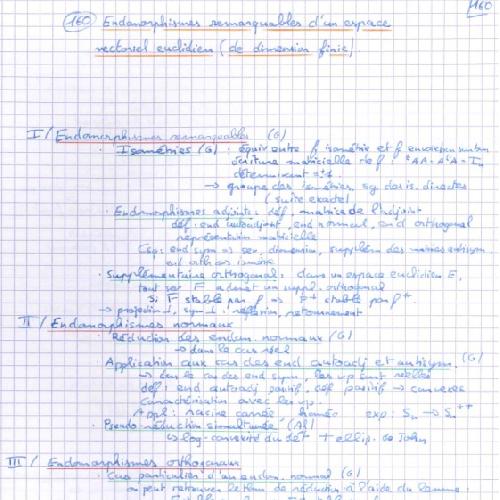 160
(160) Endomorphismes remarquables d'un espace
vectoriel euclidien (de dimension finie)
I/ Endomorphismes remarquables (G)
· Isométries (G) : équiv entre f isométrie et f
écriture matricielle de f : ᵗAA = AᵗA = In
déterminant = ±1
→ groupe des isométries, sg des is. directes
(suite exacte)
· Endomorphismes adjoints : déf, matrice de l'adjoint
déf : end autoadjoint, end normal, end orthogonal
représentation matricielle
Csq : end sym = sev, dimension, supplém des matrices antisym
end orth
· Supplémentaire orthogonal : dans un espace euclidien E,
tout sev F admet un suppl. orthogonal
Si F stable par f ⇒ F⊥ stable par f*
→ projection ⊥, sym ⊥ : réflexion, retournement
II/ Endomorphismes normaux
· Réduction des endom. normaux (G)
→ dans le cas n=2
· Application aux cas des end autoadj et antisym. (G)
→ dans le cas des end sym, les vp sont réelles
déf : end autoadj positif, déf positif → convexe
Caractérisation avec les vp.
Appl : Racine carrée homéo exp : Sn → Sn++
· Pseudo-réduction simultanée (Al)
↳ log-convexité du dét + ellip. de John
III/ Endomorphismes orthogonaux
· Cas particulier d'un endom. normal (G)
on peut retrouver le thm de réduction à l'aide du lemme :